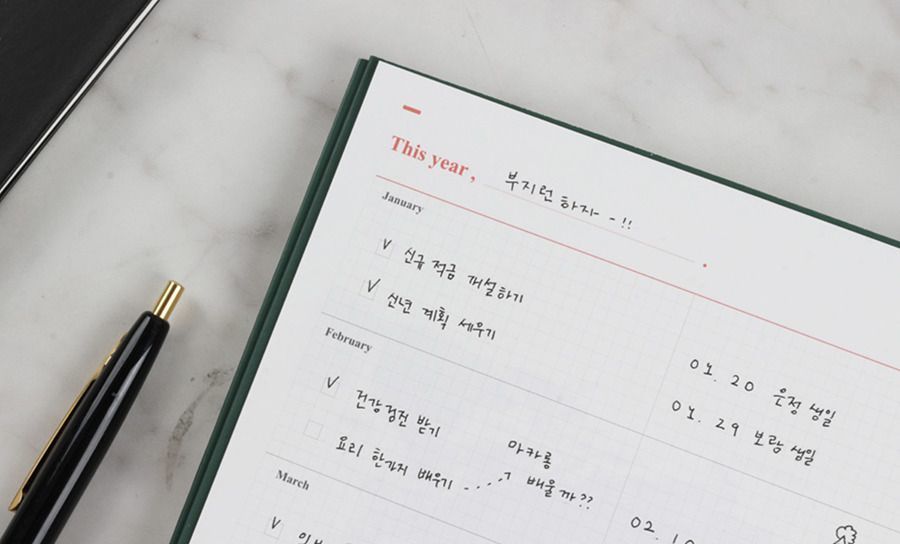 This year, 부지런 하자 - !!
January
✓ 신규 적금 개설하기
✓ 신년 계획 세우기
01. 20 은정 생일
01. 29 보람 생일
February
✓ 건강검진 받기
요리 한가지 배우기 ....→ 마카롱
배울까??
02. 10
March
✓